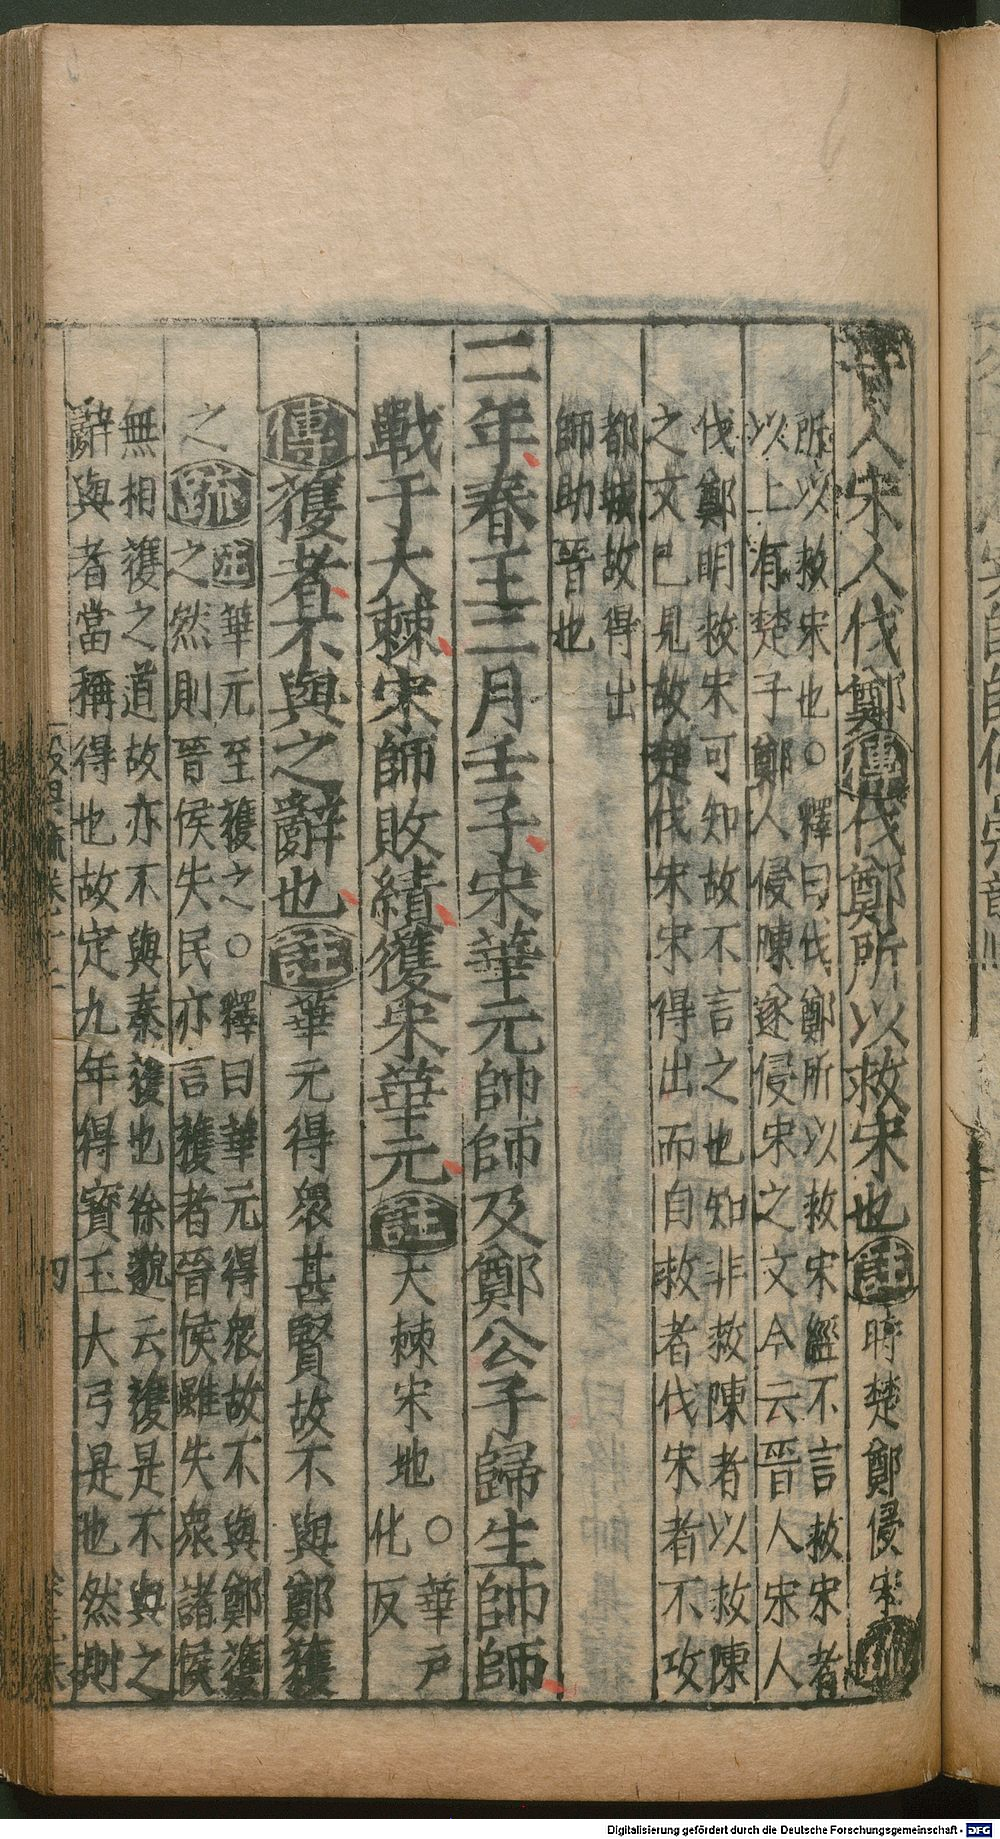 晉人宋人伐鄭傳伐鄭所以救宋也註時楚鄭侵宋疏
所以救宋也○釋曰伐鄭所以救宋經不言救宋者
以上有楚子鄭人侵陳遂侵宋之文今云晉人宋人
伐鄭明救宋可知故不言之也知非救陳者以救陳
之文已見故楚伐宋宋得出而自救者伐宋者不攻
都城故得出
師助晉也
二年春王二月壬子宋華元帥師及鄭公子歸生帥師
戰于大棘宋師敗績獲宋華元註大棘宋地○華戶
化反
傳獲者不與之辭也註華元得眾甚賢故不與鄭獲
之疏註華元至獲之○釋曰華元得眾故不與鄭獲
之然則晉侯失民亦言獲者晉侯雖失眾諸侯
無相獲之道故亦不與秦獲也徐邈云獲是不與之
辭與者當稱得也故定九年得寳玉大弓是也然則
四
Digitalisierung gefördert durch die Deutsche Forschungsgemeinschaft - DFG